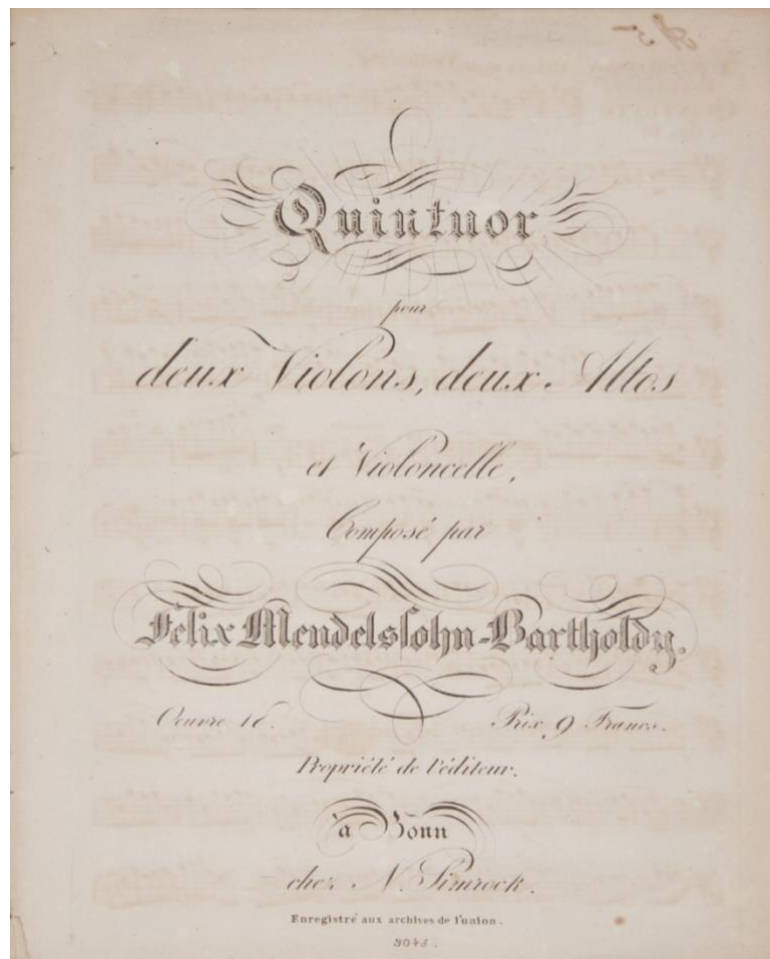 Quintuor
pour
deux Violons, deux Altos
et Violoncelle,
Composé par
Felix Mendelssohn-Bartholdy.
Oeuvre 18. Prix 9 Francs.
Propriété de l'éditeur.
à Bonn
chez N. Simrock.
Enregistré aux archives de l'union.
3045.